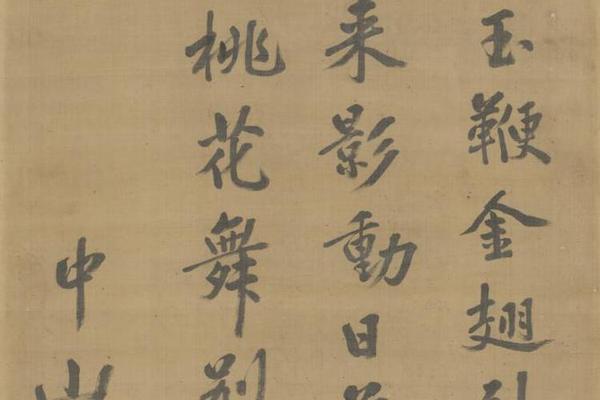 玉鞭金翅
来影動日
桃花舞
中山